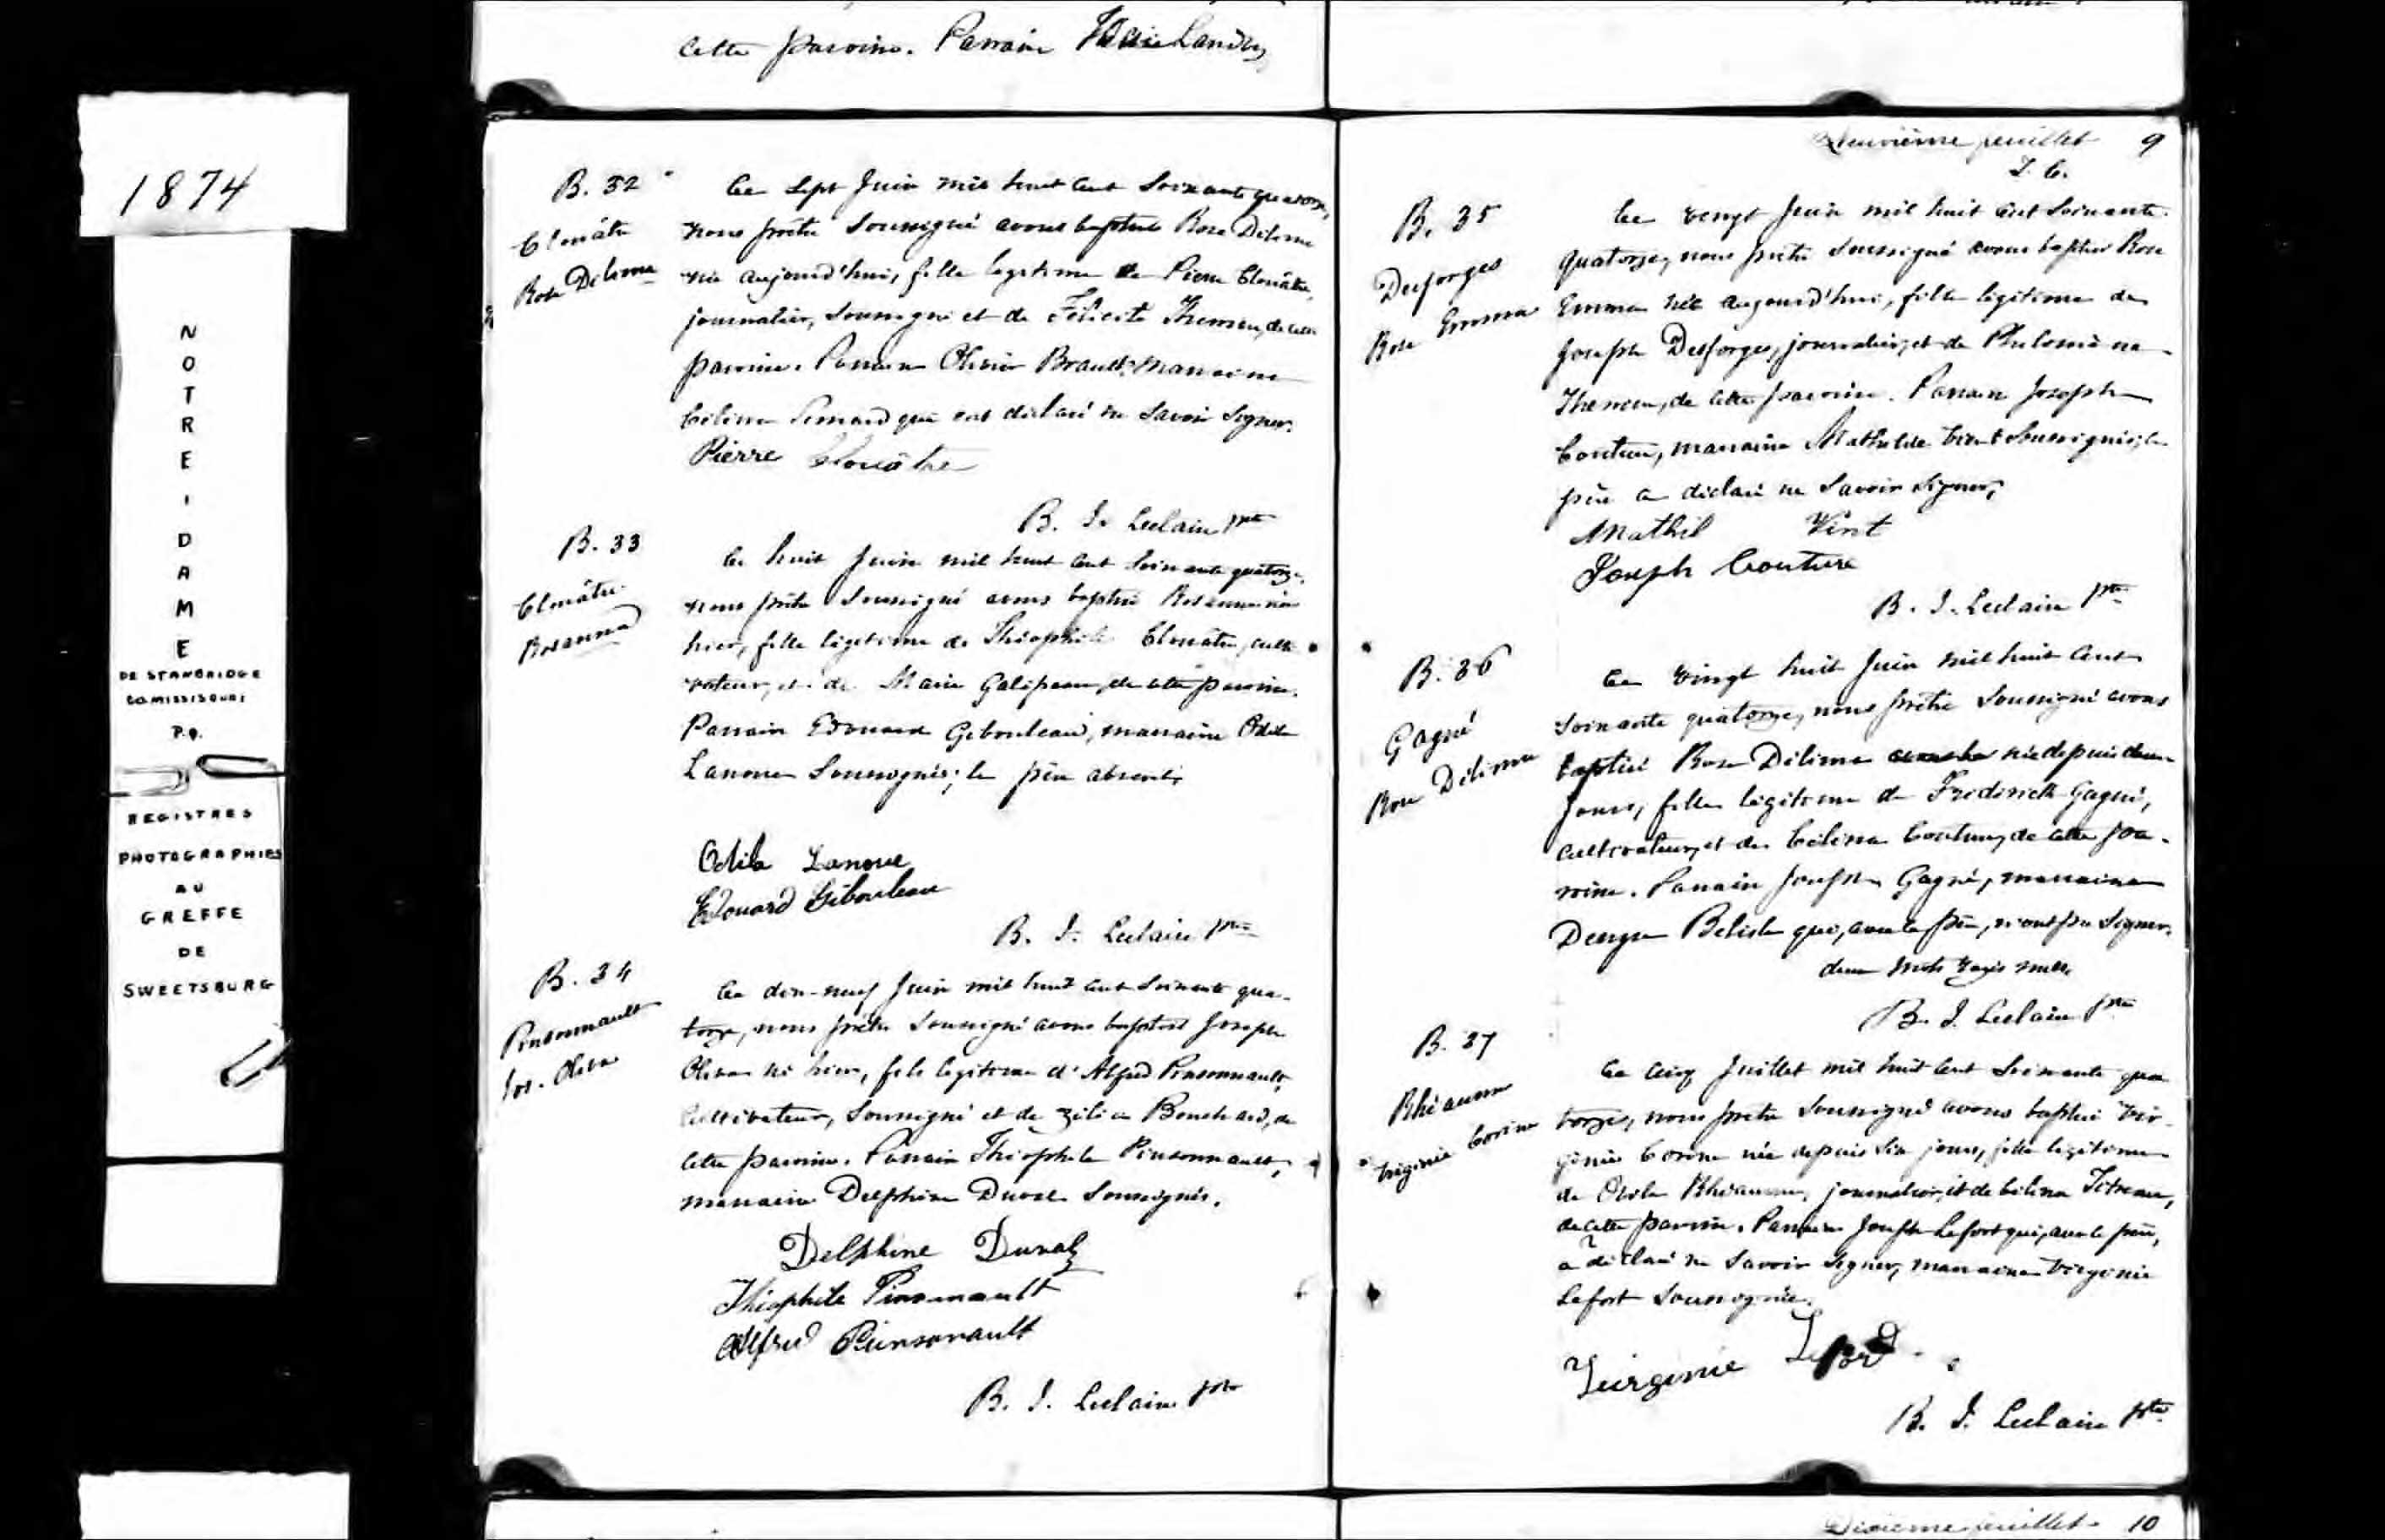 cette paroisse. Parrain Landry
1874
NOTRE-DAME
DE STANBRIDGE
CO. MISSISQUOI
P.Q.
REGISTRES
PHOTOGRAPHIES
AU
GREFFE
DE
SWEETSBURG
B. 32
Clouâtre
Rose Delima
Le sept Juin mil huit cent soixante quatorze,
nous prêtre soussigné avons baptisé Rose Delima
née aujourd'hui, fille légitime de Pierre Clouâtre,
journalier, soussigné et de Félicité Therrien, de cette
paroisse. Parrain Olivier Brault, marraine
Célina qui ont déclaré ne savoir signer.
Pierre Clouâtre
B. J. Leclaire ptre
B. 33
Clouâtre
Rosanna
Le huit Juin mil huit cent soixante quatorze,
nous prêtre soussigné avons baptisé Rosanna née
hier, fille légitime de Théophile Clouâtre, culti-
vateur, et de Marie Galipeau, de cette paroisse.
Parrain Edouard Gibouleau, marraine Odile
Lanoue soussignés; le père absent.
Odile Lanoue
Edouard Gibouleau
B. J. Leclaire ptre
B. 34
Pinsonnault
Jos. Oliva
Le dix-neuf Juin mil huit cent soixante qua-
torze, nous prêtre soussigné avons baptisé Joseph
Oliva né hier, fils légitime d'Alfred Pinsonnault,
cultivateur, soussigné et de Zélia Bouchard, de
cette paroisse. Parrain Théophile Pinsonnault,
marraine Delphine Duval soussignés.
Delphine Duval
Théophile Pinsonnault
Alfred Pinsonault
B. J. Leclaire ptre
Neuvième feuillet 9
B. 35
Desforges
Rose Emma
Le vingt Juin mil huit cent soixante-
quatorze, nous prêtre soussigné avons baptisé Rose
Emma née aujourd'hui, fille légitime de
Joseph Desforges, journalier, et de Philomène
Therrien, de cette paroisse. Parrain Joseph
Couture, marraine Mathilde Vient soussignés; le
père a déclaré ne savoir signer,
Mathil Vint
Joseph Couture
B. J. Leclaire ptre
B. 36
Gagné
Rose Délima
Le vingt huit Juin mil huit cent
soixante quatorze, nous prêtre soussigné avons
baptisé Rose Délima née depuis deux
jours, fille légitime de Frederick Gagné,
cultivateur, et de Célina Couture, de cette pa-
roisse. Parrain Joseph Gagné, marraine
Belisle qui, avec le père, n'ont pu signer.
deux mots rayés nuls.
B. J. Leclaire ptre
B. 37
Rhéaume
Virginie Corine
Le cinq Juillet mil huit cent soixante qua-
torze, nous prêtre soussigné avons baptisé Vir-
ginie Corine née depuis six jours, fille légitime
de Rhéaume, journalier, et de Célina Tétreau,
de cette paroisse. Parrain Joseph Lefort qui, avec le père,
a déclaré ne savoir signer, marraine Virginie
Lefort soussignée.
Virginie
B. J. Leclaire ptre
Dixième feuillet 10